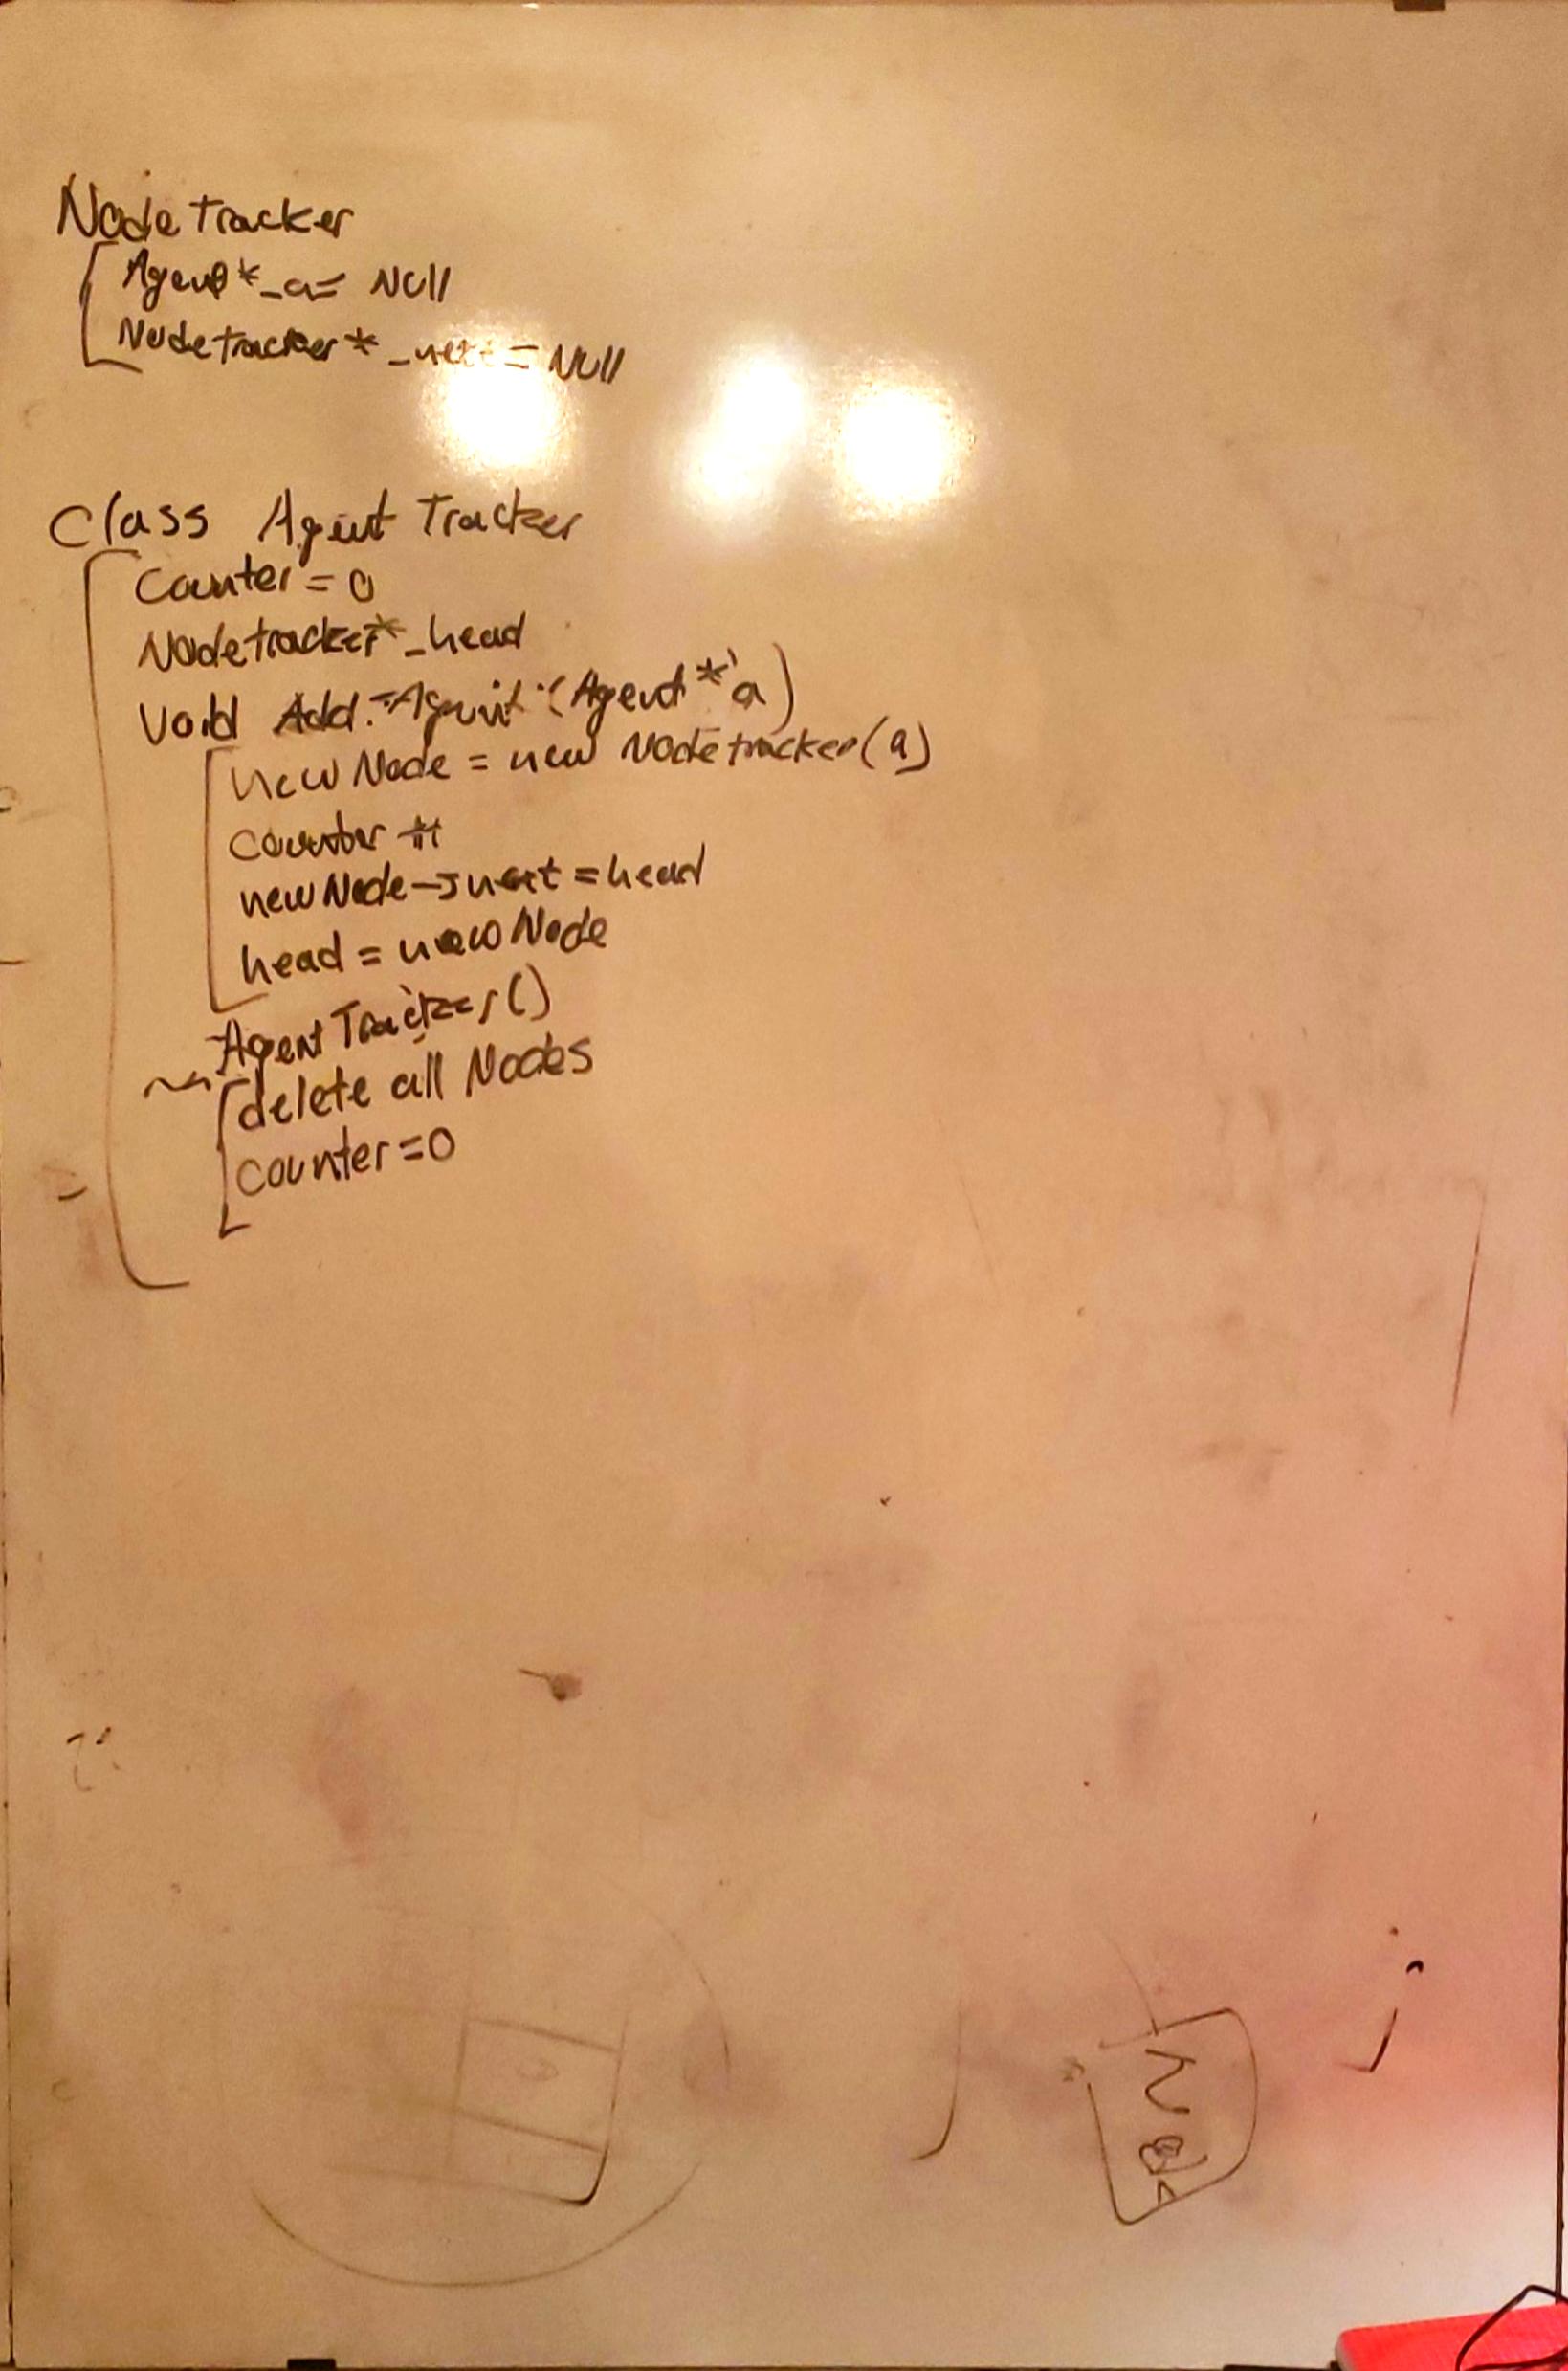 Nodetracker
Agent*_a= Null
Nodetracker* _next = Null
Class Agent Tracker
Counter = 0
Nodetracker* _head
Void Add-Agent (Agent * a)
new Node = new Nodetracker(a)
counter ++
new Node->next = head
head = new Node
~AgentTracker()
delete all Nodes
counter=0
Node